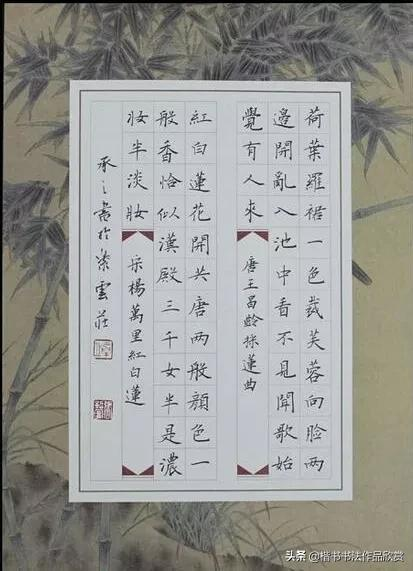 荷葉羅裙一色裁芙蓉向脸两
邊開亂入池中看不見聞歌始
覺有人來
唐王昌龄採蓮曲
紅白蓮花開共唐两般顏色一
般香恰似漢殿三千女半是濃
妆半淡妝
宋楊萬里紅白蓮
承之書於紫雲莊
头条 @楷书书法作品欣赏